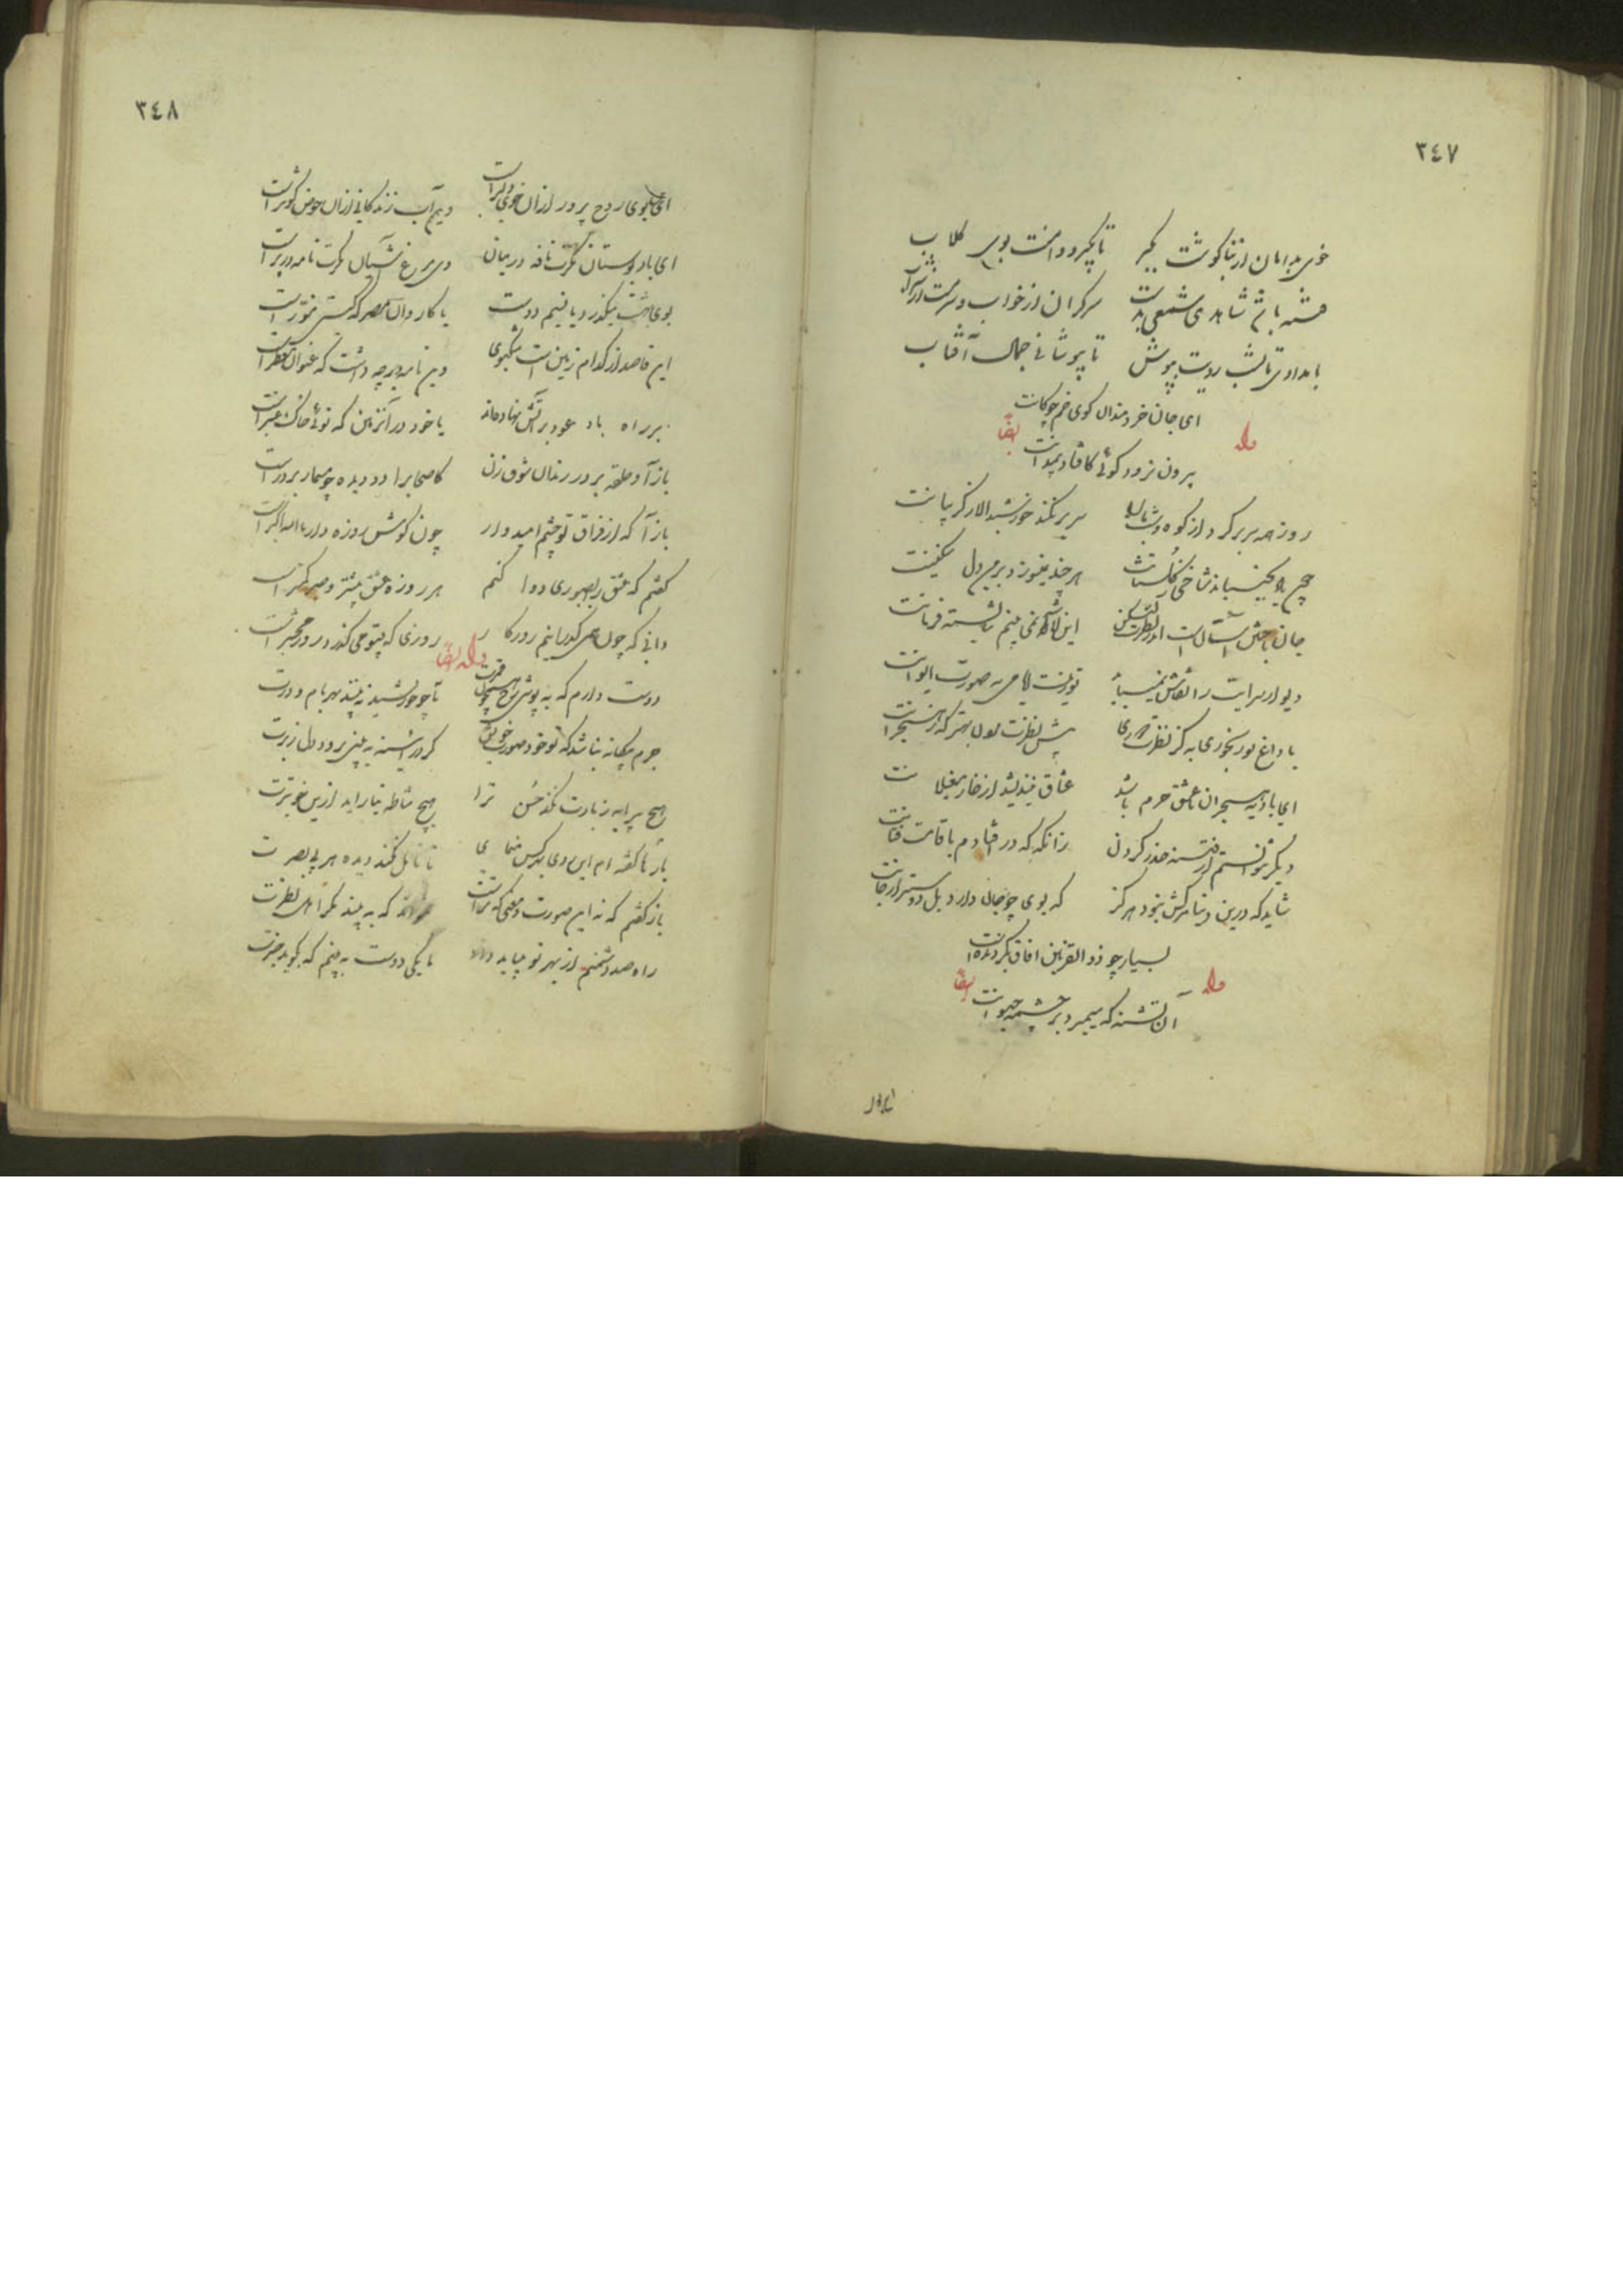 ٣٤٧
خوی بدامان از بناگوشت بگیر تا بگیرد دامنت بوی گلاب
فتنه باشد شاهدی شمعی بدست سرگران از خواب و سرمست از شراب
بامدادی تا بشب رویت بپوش تا بپوشانی جمال آفتاب
وله ایضاً
ای جان خردمندان گوی خم چوگانت
بیرون نرود گوئی کافتاد بمیدانت
روز همه سر بر کرد از کوه و شب ما را سر بر نکند خورشید الا ز گریبانت
هر چند نمیسوزد بر من دل سنگینت
جان باختن آسان است اندر نظرت لیکن این لاشه نمی بینم شایسته قربانت
دیوار سرایت را نقاش نمیباید تو زینت ایوانی نه صورت ایوانت
با داغ تو رنجوری به کز نظرت دوری پیش نظرت مردن بهتر که ز هجرانت
ای بادیه هجران تا عشق حرم باشد عشاق نیندیشد از خار مغیلانت
دیگر نتوانستم از فتنه حذر کردن زانگه که در افتادم با قامت فتانت
شاید که درین دنیا مرگش نبود هرگز که بوی چو جان دارد بل دوستر از جانت
وله ایضاً
بسیار چو ذو القرنین آفاق بگردیده است
آن تشنه که میمیرد بر چشمه حیوانت
٣٤٨
ای بوی روح پرور از آن خوی دلبر است وین آب زندگانی از آن حوض کوثر است
ای باد بوستان مگرت نافه در میان وی مرغ آشیان مگرت نامه در پر است
بوی بهشت میگذرد یا نسیم دوست یا کاروان مصر که گیتی منور است
این قاصد از کدام زمین است مشکبوی وین نامه در چه داشت که عنوان معطر است
بر راه باد عود بر آتش نهاده اند یا خود در آن زمین که توئی خاک عنبر است
باز آ و حلقه بر در رندان شوق زن کاصحاب را دو دیده چو مسمار بر در است
باز آ که از فراق تو چشم امیدوار چون گوش روزه دار بر الله اکبر است
گفتم که عشق را بصبوری دوا کنم هر روزه عشق بیشتر و صبر کمتر است
دانی که چون همی گذرانیم روزگار روزی که بیتو می گذرد روز محشر است
وله ایضاً
دوست دارم که به پوشی رخ همچون قمرت تا چو خورشید نه بینند بهر بام و درت
جرم بیگانه نباشد که تو خود صورت خویش گر در آئینه به بینی برود دل ز برت
هیچ پیرایه زیادت نکند حسن ترا هیچ مشاطه نیاراید ازین خوبترت
بارها گفته ام این روی بهر کس منمای تا تامل نکند دیده هر بی بصرت
باز گفتم که نه این صورت و معنی که تراست نتواند که به بیند مگر اهل نظرت
راه صد دشمنم از بهر تو میباید داد تا یکی دوست به بینم که بگوید خبرت